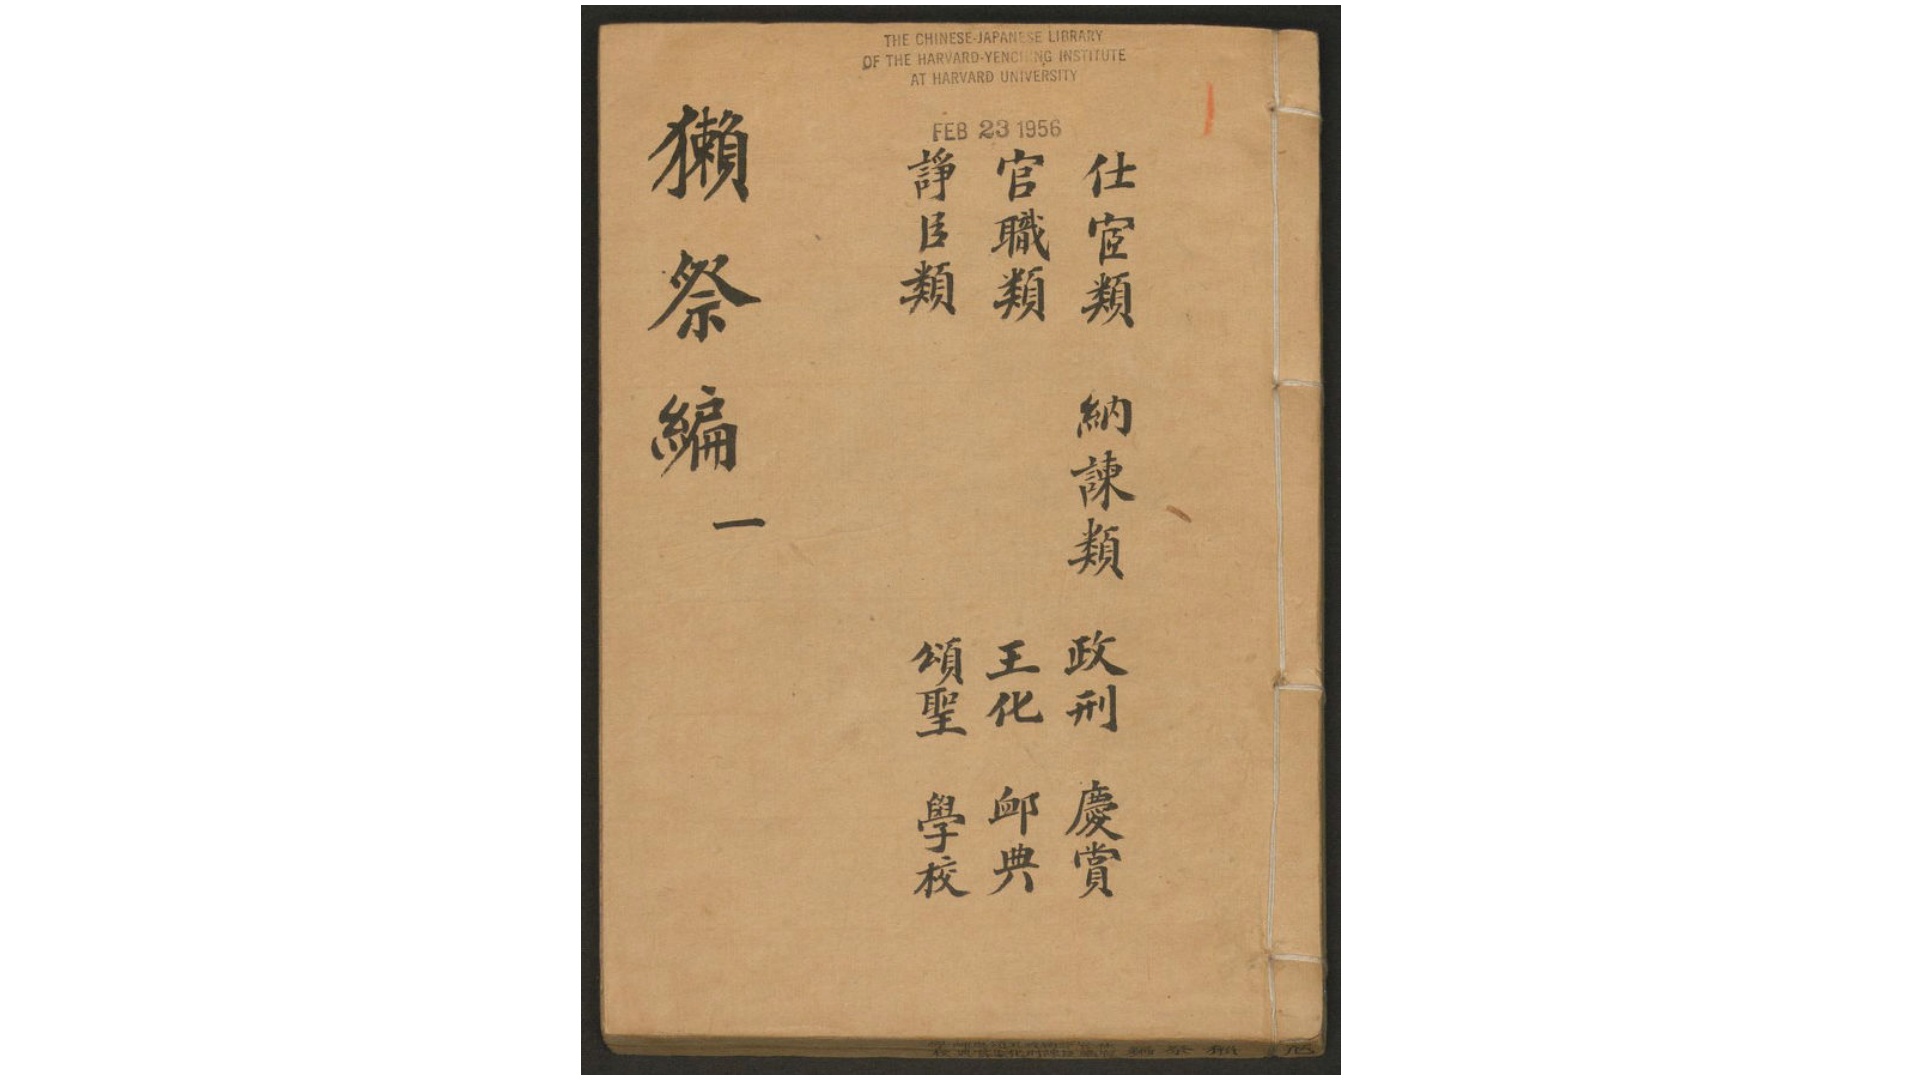 THE CHINESE-JAPANESE LIBRARY
OF THE HARVARD-YENCHING INSTITUTE
AT HARVARD UNIVERSITY
FEB 23 1956
仕宦類
納諫類
政刑
慶賞
官職類
王化
卹典
諍臣類
頌聖
學校
獺祭編
一